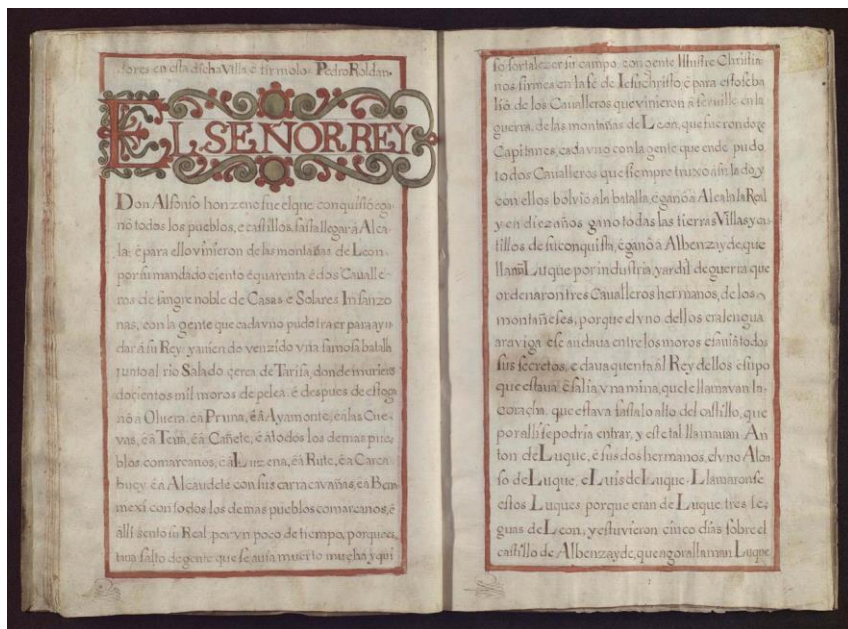 tores en esta dicha Villa é firmolo: Pedro Roldan.
EL SEÑOR REY
Don Alfonso honzeno fue el que conquistó é ga-
nó todos los pueblos, é castillos, fasta llegar á Alca-
la: é para ello vinieron de las montañas de Leon
por su mandado ciento é quarenta é dos Cavalle-
ros de sangre noble de Casas é Solares Infanzo
nas, con la gente que cada vno pudo traer para ayu
dar á su Rey: y auiendo venzido vna famosa batalla
junto al rio Salado çerca de Tarifa, donde murieró
docientos mil moros de pelea. é despues de esto ga
nó á Oluera. é á Pruna, é á Ayamonte, é a las Cue-
vas, é á Teua, é á Cañete, é á todos los demas pue-
blos comarcanos, é á Luzena, é á Rute, é á Carca
buey é á Alcaudete con sus carracavañas, é a Ben
mexi con todos los demas pueblos comarcanos, é
alli sento su Real, por vn poco de tiempo, porque es-
taua falto de gente que se auia muerto mucha y qui
so fortalezer su campo con gente Illustre Christia
nos firmes en la fé de Iesuchristo; é para esto se ba
lió de los Caualleros que vinieron á seruille en la
guerra, de las montañas de Leon, que fueron doze
Capitanes, cada vno con la gente que ende pudo
todos Caualleros que siempre truxo á su lado, y
con ellos bolvio a la batalla, é ganó á Alcala la Real
y en diez años gano todas las tierras Villas y cas
tillos de su conquista, é ganó á Albenzayde, que
llamā Luque por industria, y ardil de guerra que
ordenaron tres Caualleros hermanos, de los
montañeses, porque el vno dellos era lengua
araviga é se andaua entre los moros é sauia todos
sus secretos, é daua quenta al Rey dellos é supo
que estaua é salia vna mina, que le llamavan la
coraçha, que estava fasta lo alto del castillo, que
por alli se podria entrar, y este tal llamauan An
ton de Luque, é sus dos hermanos, el vno Alon
so de Luque, é Luis de Luque. Llamaronse
estos Luques, porque eran de Luque, tres le-
guas de Leon; y estuvieron cinco dias sobre el
castillo de Albenzayde, que agora llaman Luque